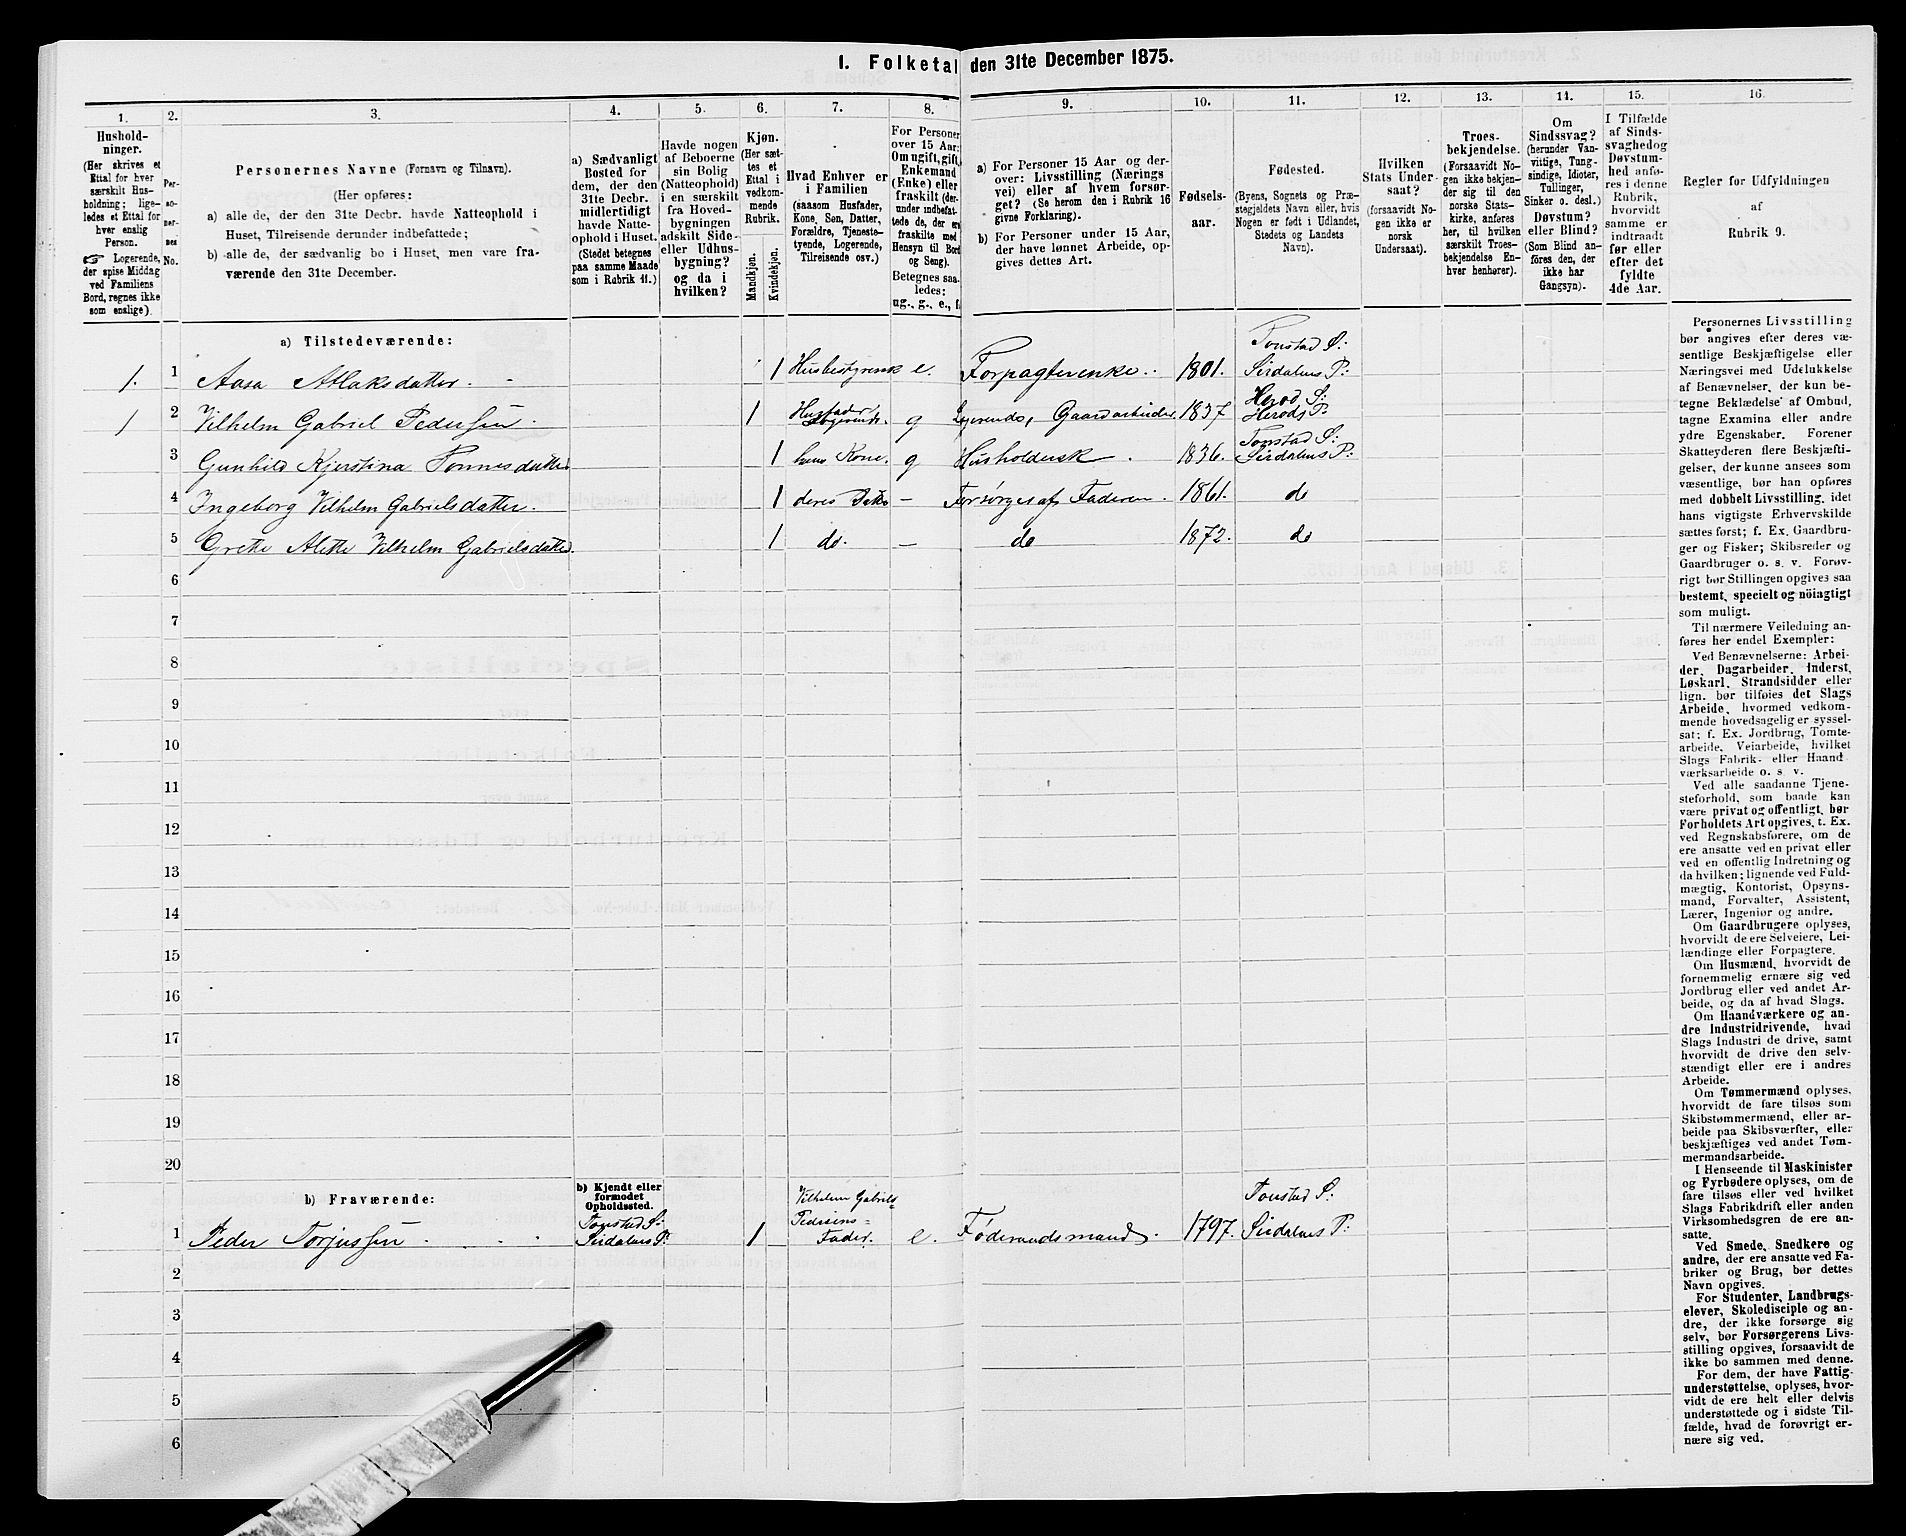 I. Folketal den 31te December 1875.
1.
Hushold-
ninger.
(Her skrives et
Ettal for hver
særskilt Hus-
holdning; lige-
ledes et Ettal for
hver enslig
Person.
☞ Logerende,
der spise Middag
ved Familiens
Bord, regnes ikke
som enslige).
2.
Per-
so-
ner-
nes
No.
3.
Personernes Navne (Fornavn og Tilnavn).
(Her opføres:
a) alle de, der den 31te Decbr. havde Natteophold i
Huset, Tilreisende derunder indbefattede;
b) alle de, der sædvanlig bo i Huset, men vare fra-
værende den 31te December.
4.
a) Sædvanligt
Bosted for
dem, der den
31te Decbr.
midlertidigt
havde Natte-
ophold i Huset.
(Stedet betegnes
paa samme Maade
som i Rubrik 11.)
5.
Havde nogen
af Beboerne
sin Bolig
(Natteophold)
i en særskilt
fra Hoved-
bygningen
adskilt Side-
eller Udhus-
bygning?
og da i
hvilken?
6.
Kjøn.
(Her sæt-
tes et
Ettal i
vedkom-
mende
Rubrik.
Mandkjøn.
Kvindekjøn.
7.
Hvad Enhver er
i Familien
(saasom Husfader,
Kone, Søn, Datter,
Forældre, Tjeneste-
tyende, Logerende,
Tilreisende osv.)
8.
For Personer
over 15 Aar:
Om ugift, gift,
Enkemand
(Enke) eller
fraskilt (der-
under indbefat-
tede de, der ere
fraskilte med
Hensyn til Bord
og Seng).
Betegnes saa-
ledes:
ug., g., e., f.
9.
a) For Personer 15 Aar og der-
over: Livsstilling (Nærings
vei) eller af hvem forsør-
get? (Se herom den i Rubrik 16
givne Forklaring).
b) For Personer under 15 Aar,
der have lønnet Arbeide, op-
gives dettes Art.
10.
Fødsels-
aar.
11.
Fødested.
(Byens, Sognets og Præ-
stegjeldets Navn eller, hvis
Nogen er født i Udlandet,
Stedets og Landets
Navn).
12.
Hvilken
Stats Under-
saat?
(forsaavidt No-
gen ikke er
norsk
Undersaat).
13.
Troes-
bekjendelse.
(Forsaavidt No-
gen ikke bekjen-
der sig til den
norske Stats-
kirke, anføres
her, til hvilken
særskilt Troes-
bekjendelse En-
hver henhører).
14.
Om
Sindssvag?
(herunder Van-
vittige, Tung-
sindige, Idioter,
Tullinger,
Sinker o. desl.)
Døvstum?
eller Blind?
(Som Blind an-
føres den, der
ikke har
Gangsyn).
15.
I Tilfælde
af Sinds-
svaghed og
Døvstum-
hed anfø-
res i denne
Rubrik,
hvorvidt
samme er
indtraadt
før eller
efter det
fyldte
4de Aar.
16.
Regler for Udfyldningen
af
Rubrik 9.
a) Tilstedeværende:
Tonstad S:
1. 1 Aasa Atlaksdatter. 1 Husbestyrensk e. Forpagterenke. 1801. Sirdalens P:
Herod S:
1 2 Vilhelm Gabriel Pedersen. 1 Husfader, Logerende. g Logerende, Gaardarbeider. 1837 Herods P:
Tonstad S:
3 Gunhild Kjerstina Tonnesdatter 1 hans Kone. g Husholdersk. 1836. Sirdalens P:
4 Ingeborg Vilhelm Gabrielsdatter. 1 deres Datter - Forsørges af Faderen. 1861. do
5 Grethe Alette Vilhelm Gabrielsdatter. 1 do. - do 1872. do
6
7
8
9
10
11
12
13
14
15
16
17
18
19
20
b) Fraværende:
b) Kjendt eller
formodet
Opholdssted.
Vilhelm Gabriel Tonstad S:
1 Peder Torjussen Tonstad S: Sirdalens P. 1 Pedersens Fader. e. Föderaadsmand. 1797. Sirdalens P:
2
3
4
5
6
Personernes Livsstilling
bør angives efter deres væ-
sentlige Beskjæftigelse eller
Næringsvei med Udelukkelse
af Benævnelser, der kun be-
tegne Beklædelse af Ombud,
tagne Examina eller andre
ydre Egenskaber. Forener
Skatteyderen flere Beskjæfti-
gelser, der kunne ansees som
væsentlige, bør han opføres
med dobbelt Livsstilling, idet
hans vigtigste Erhvervskilde
sættes først; f. Ex. Gaardbru-
ger og Fisker; Skibsreder og
Gaardbruger o. s. v. Forøv-
rigt bør Stillingen opgives saa
bestemt, specielt og nöiagtigt
som muligt.
Til nærmere Veiledning an-
føres her endel Exempler:
Ved Benævnelserne: Arbei-
der, Dagarbeider, Inderst,
Løskarl, Strandsidder eller
lign. bør tilføies det Slags
Arbeide, hvormed vedkom-
mende hovedsagelig er syssel-
sat; f. Ex. Jordbrug, Tomte-
arbeide, Veiarbeide, hvilket
Slags Fabrik- eller Haand
værksarbeide o. s. v.
Ved alle saadanne Tjene-
steforhold, som baade kan
være privat og offentligt, bør
Forholdets Art opgives, t. Ex.
ved Regnskabsførere, om de
ere ansatte ved en privat eller
ved en offentlig Indretning og
da hvilken; lignende ved Fuld-
mægtig, Kontorist, Opsyns-
mand, Forvalter, Assistent,
Lærer, Ingeniør og andre.
Om Gaardbrugere oplyses,
hvorvidt de ere Selveiere, Lei-
lændinge eller Forpagtere.
Om Husmænd, hvorvidt de
fornemmelig ernære sig ved
Jordbrug eller ved andet Ar-
beide, og da af hvad Slags.
Om Haandværkere og an-
dre Industridrivende, hvad
Slags Industri de drive, samt
hvorvidt de drive den selv-
stændigt eller ere i andres
Arbeide.
Om Tømmermænd oplyses,
hvorvidt de fare tilsøs som
Skibstømmermænd, eller ar-
beide paa Skibsværfter, eller
beskjæftiges ved andet Tøm-
mermandsarbeide.
I Henseende til Maskinister
og Fyrbødere oplyses, om de
fare tilsøs eller ved hvilket
Slags Fabrikdrift eller anden
Virksomhedsgren de ere an-
satte.
Ved Smede, Snedkere og
andre, der ere ansatte ved Fa-
briker og Brug, bør dettes
Navn opgives.
For Studenter, Landbrugs-
elever, Skoledisciple og an-
dre, der ikke forsørge sig
selv, bør Forsørgerens Livs-
stilling opgives, forsaavidt de
ikke bo sammen med denne.
For dem, der have Fattig-
understøttelse, oplyses, hvor-
vidt de ere helt eller delvis
understøttede og i sidste Til-
fælde, hvad de forøvrigt er-
nære sig ved.